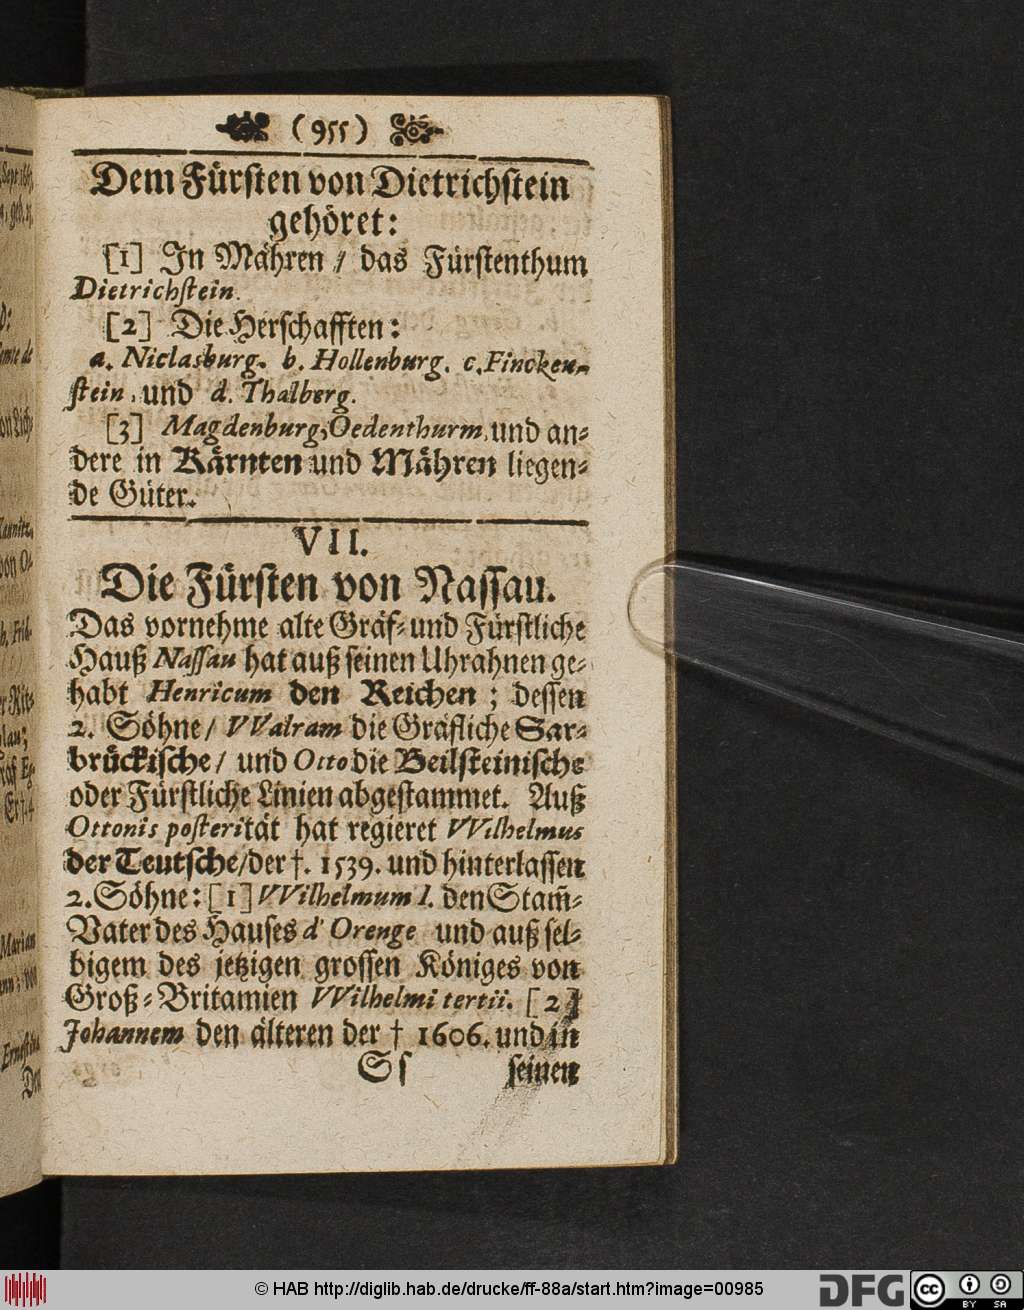 (955)
Dem Fürsten von Dietrichstein
gehöret:
[1] In Mähren / das Fürstenthum
Dietrichstein.
[2] Die Herschafften:
a. Niclasburg. b. Hollenburg. c. Fincken-
stein, und d. Thalberg.
[3] Magdenburg, Oedenthurm, und an-
dere in Kärnten und Mähren liegen-
de Güter.
VII.
Die Fürsten von Nassau.
Das vornehme alte Gräf- und Fürstliche
Hauß Nassau hat auß seinen Uhrahnen ge-
habt Henricum den Reichen; dessen
2. Söhne / VValram die Gräfliche Sar-
brückische / und Otto die Beilsteinische
oder Fürstliche Linien abgestammet. Auß
Ottonis posterität hat regieret VVilhelmus
der Teutsche / der †. 1539. und hinterlassen
2. Söhne: [1] VVilhelmum I. den Stam̃-
Vater des Hauses d' Orenge und auß sel-
bigem des jetzigen grossen Königes von
Groß-Britannien VVilhelmi tertii. [2]
Johannem den älteren der † 1606. und in
Ss seinen
© HAB http://diglib.hab.de/drucke/ff-88a/start.htm?image=00985
DFG
cc
BY SA